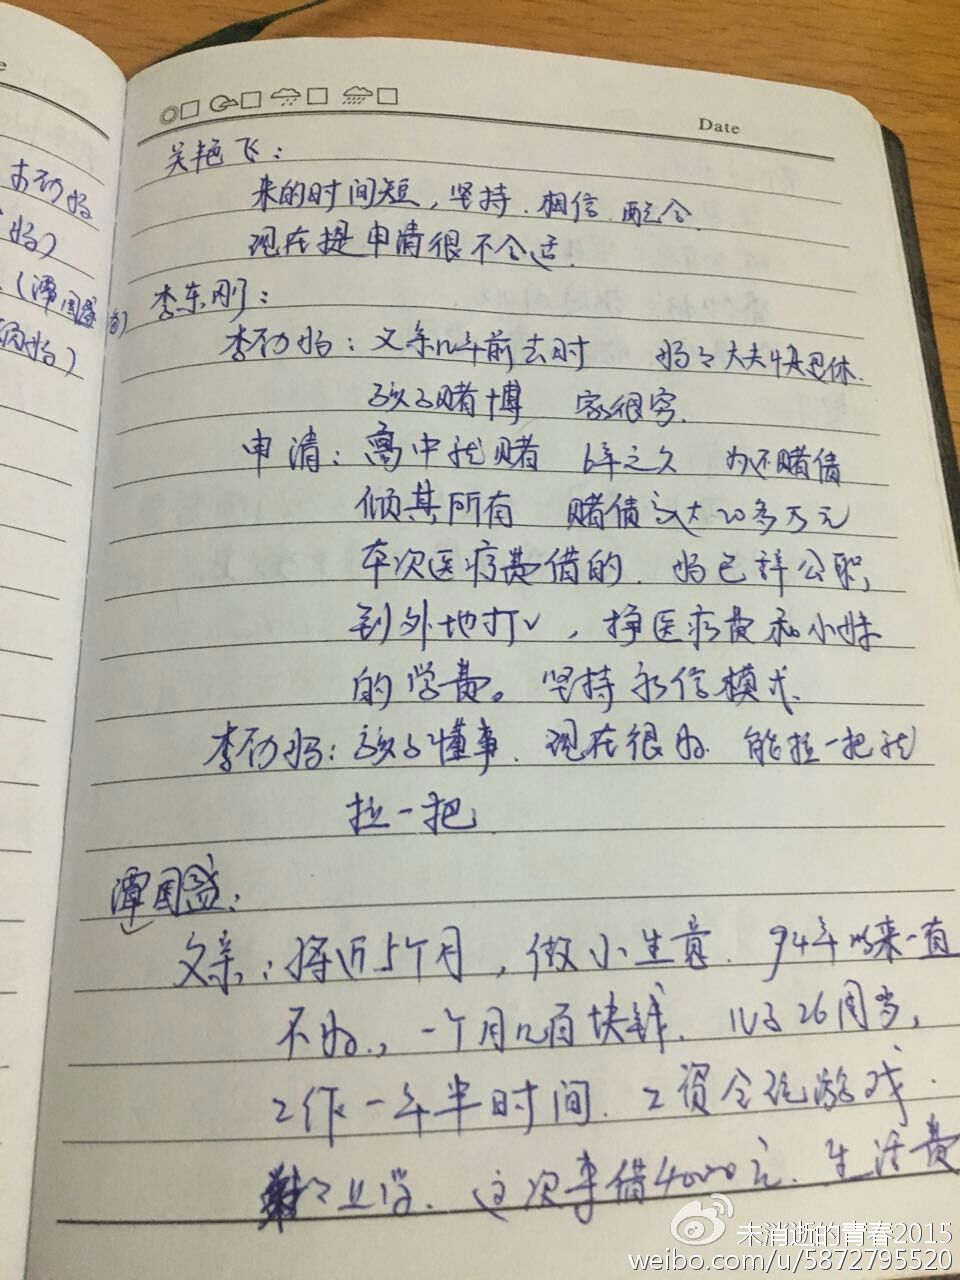 Date
吴艳飞：
来的时间短，坚持.相信.配合
现在提申请很不合适.
李东刚：
李劲妈：父亲几年前去时 妈々大夫快退休.
孩子赌博 家很穷.
申请：高中就赌 6年之久 为还赌债
倾其所有 赌债达20多万元
本次医疗费借的. 妈已辞公职,
到外地打工，挣医疗费和小妹
的学费。坚持永信模式.
李劲妈：孩子懂事. 现在很好. 能拉一把就
拉一把.
谭国盛：
父亲：将近5个月，做小生意. 94年以来一直
不好., 一个月几百块钱. 儿子26周岁,
工作一年半时间. 工资全玩游戏.
这次来借4000元. 生活费
李劲妈
妈)
(谭国盛爸)
妈)
未消逝的青春2015
weibo.com/u/5872795520